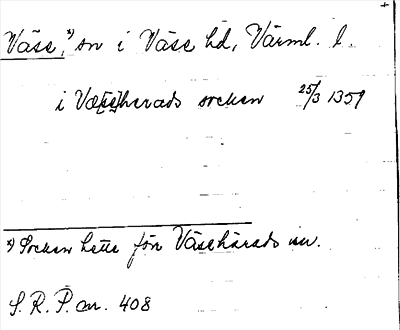 Väse,*) sn i Väse hd, Värml. l.
i Væ[se]herads socken 25/3 1359
*) Socken hette förr Väsehärads sn.
S.R.P. nr. 408